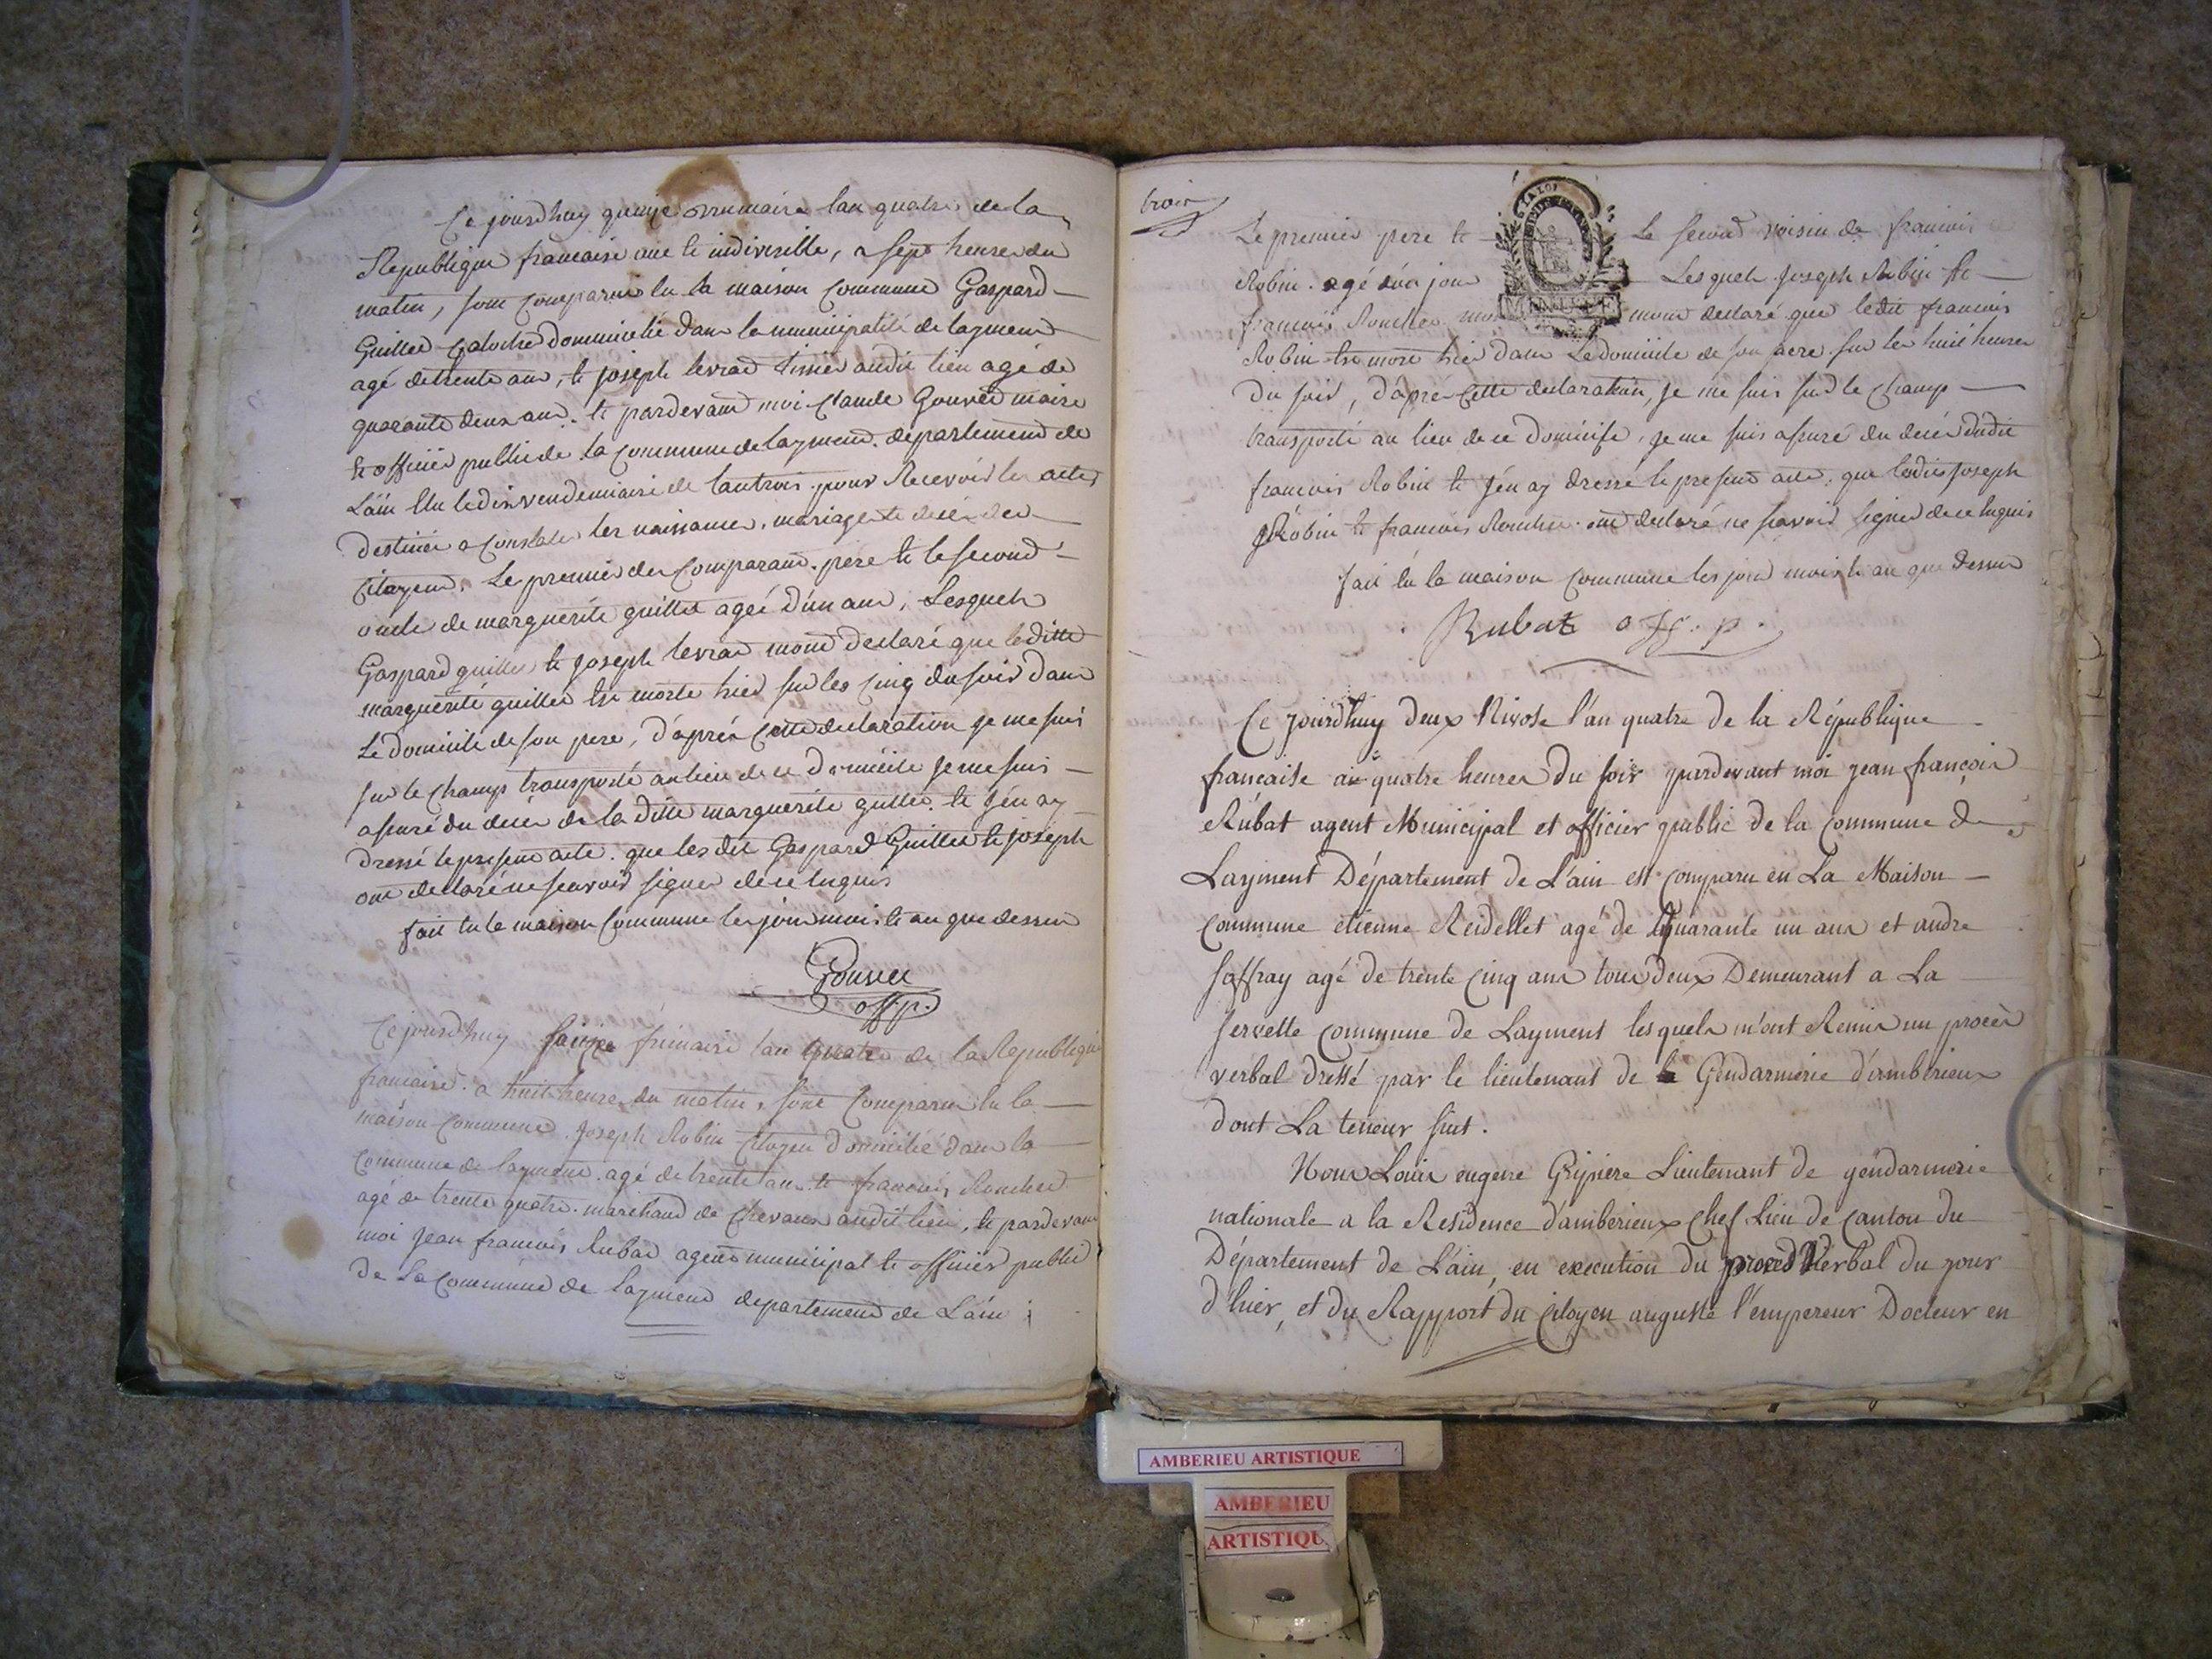 Ce jourdhuy quinze brumaire lan quatre de la
Republique francaise une et indivisible, a sept heures du
matin, sont comparus en la maison commune Gaspard
Guillet domicilié dans la municipalité de layment
agé de trente ans, et joseph levrat tissier audit lieu agé de
quarante deux ans. et pardevant moi Claude Gouvet maire
et officier public de la commune de layment. departement de
L'ain Elu le dix vendemiaire de lan trois. pour Recevoir les actes
destinés a Constater les naissances, mariages et décés des
Citoyens. Le premier des Comparans. pere et le second
oncle de marguerite guillet agée d'un ans, Lesquels
Gaspard guillet et Joseph levrat mont declaré que leditte
marguerite guillet est morte hier sur les Cinq du soir dans
Le domicile de son pere, d'après cette declaration je me suis
sur le champ transporté au lieu de ce domicile je me suis
assuré du décés de la ditte marguerite guillet. et j'en ay
dressé le present acte. que les dit Gaspard Guillet et joseph
ont declaré ne scavoir signer de ce enquis
fait en la maison Commune les jour mois et an que dessus
Gouvet
off. p.
Ce jourdhuy seize frimaire lan quatre de la Republique
francaise. a huit heures du matin, sont Comparus en la
maison Commune. Joseph Robin Citoyen domicilié dans la
Commune de layment. agé de trente ans. et francois Roucher
agé de trente quatre. marchand de chevaux audit lieu, et pardevant
moi Jean francois Rubat agent municipal et officier public
de La Commune de layment departement de L'ain
trois
Le premier pere et Le second voisin de francois
Robin. agé d'un jour Lesquels Joseph Robin et
francois Roucher mont declaré que ledit francois
Robin est mort hier dans Le domicile de son pere sur les huit heures
du soir, d'après cette declaration, je me suis sur le champ
transporté au lieu de ce domicile, je me suis assuré du décés dudit
francois Robin et j'en ay dressé le present acte, que lesdits Joseph
Robin et francois Roucher. ont declaré ne scavoir signer de ce enquis
fait en la maison commune les jour mois et an que dessus
Rubat off. p.
Ce jourdhuy deux Nivose l'an quatre de la République
francaise a quatre heures du soir pardevant moi jean françois
Rubat agent Municipal et officier public de la Commune de
Layment Département de L'ain est comparu en La Maison
Commune etienne Reidellet agé de quarante un ans et andre
Saffray agé de trente cinq ans tous deux Demeurant a La
Servette commune de Layment lesquels m'ont Remis un procès
verbal dressé par le lieutenant de la Gendarmerie d'amberieux
dont La teneur suit.
Nous Louis eugene Lieutenant de gendarmerie
nationale a la Residence d'amberieux chef Lieu de canton du
Département de L'ain, en execution du procès Verbal du jour
d'hier, et du Rapport du Citoyen auguste l'empereur Docteur en
AMBERIEU ARTISTIQUE
AMBERIEU
ARTISTIQU